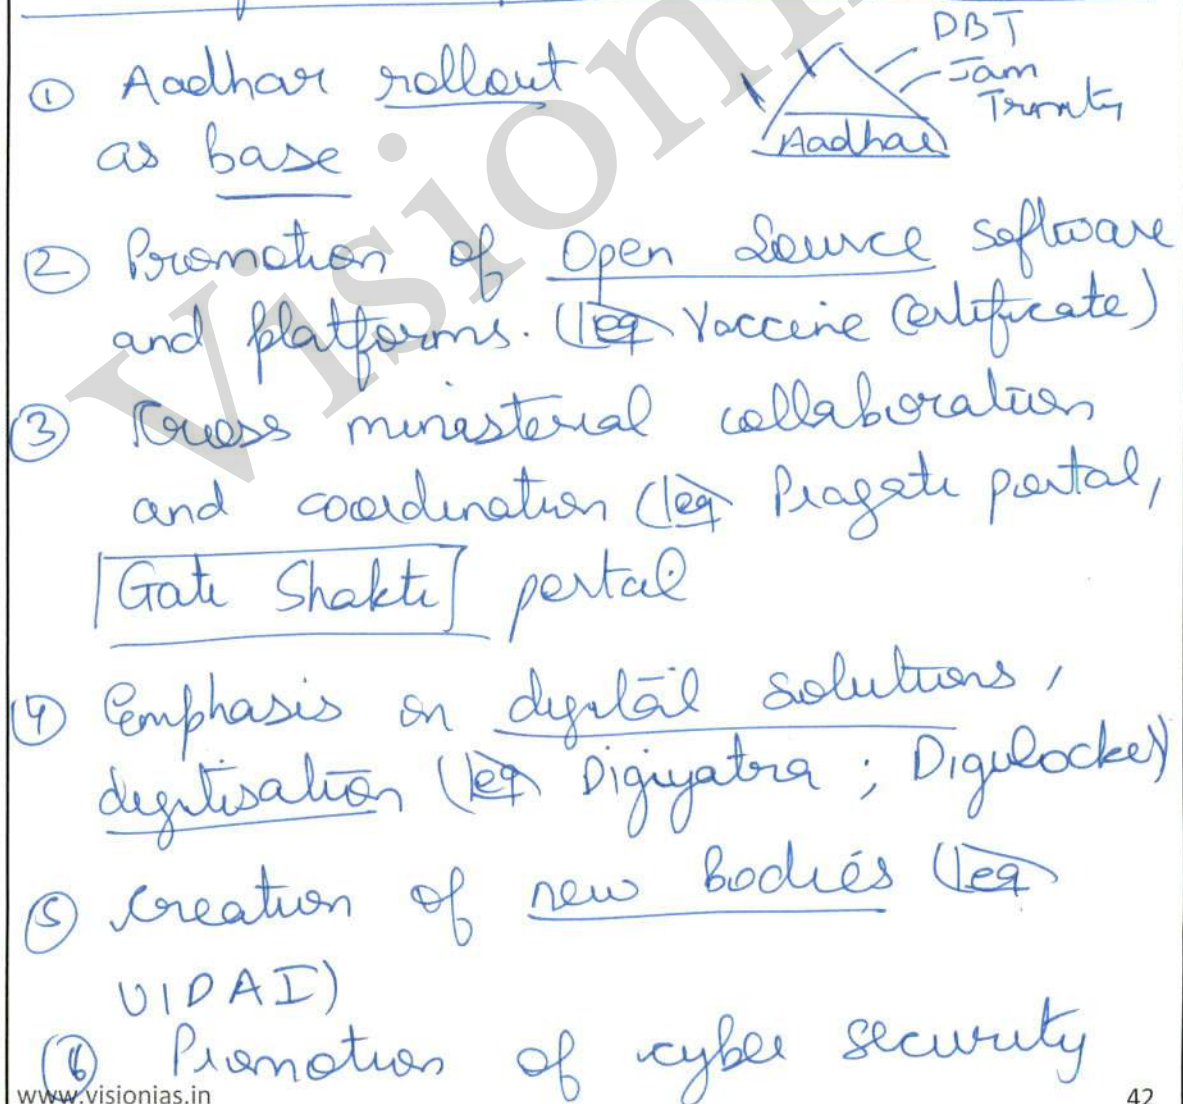 ① Aadhar rollout
as base
DBT
Jam
Trinity
Aadhar
② Promotion of Open Source software
and platforms. (eg Vaccine Certificate)
③ Cross ministerial collaboration
and coordination (eg Pragati portal,
Gati Shakti portal
④ Emphasis on digital solutions,
digitisation (eg Digiyatra ; Digilocker)
⑤ Creation of new Bodies (eg
UIDAI)
⑥ Promotion of cyber security
www.visionias.in
42
Vision